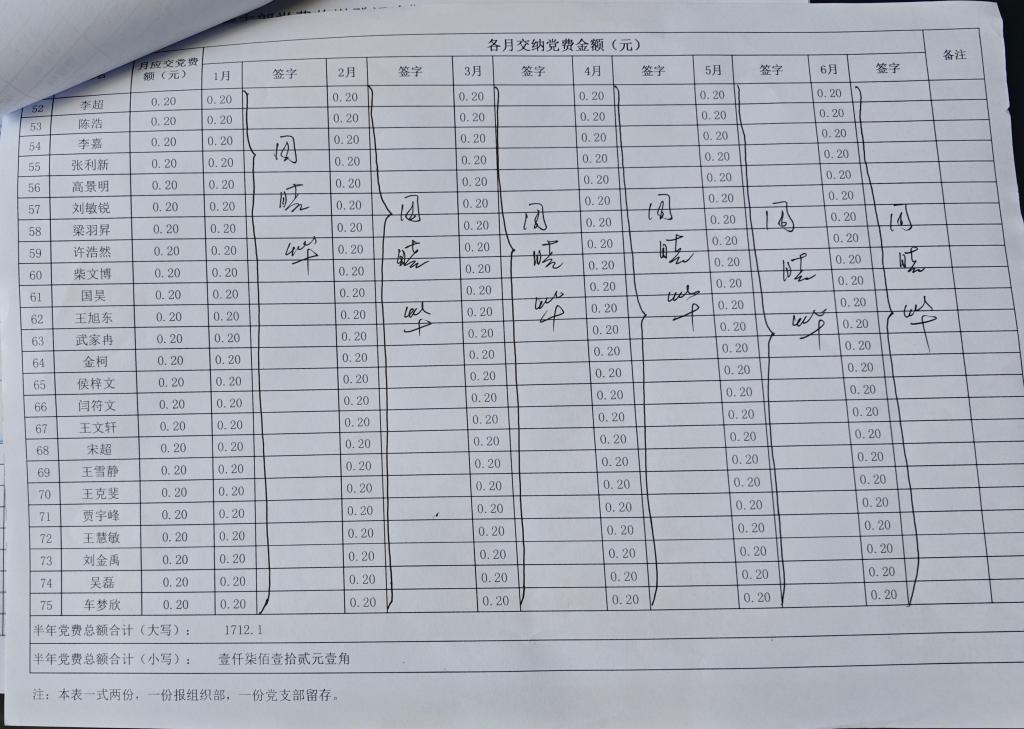 各月交纳党费金额（元）
月应交党费额（元） 1月 签字 2月 签字 3月 签字 4月 签字 5月 签字 6月 签字 备注
52 李超 0.20 0.20 0.20 0.20 0.20 0.20 0.20
53 陈浩 0.20 0.20 0.20 0.20 0.20 0.20 0.20
54 李嘉 0.20 0.20 0.20 0.20 0.20 0.20 0.20
55 张利新 0.20 0.20 0.20 0.20 0.20 0.20 0.20
56 高景明 0.20 0.20 0.20 0.20 0.20 0.20 0.20
57 刘敏锐 0.20 0.20 0.20 0.20 0.20 0.20 0.20
58 梁羽昇 0.20 0.20 0.20 0.20 0.20 0.20 0.20
59 许浩然 0.20 0.20 0.20 0.20 0.20 0.20 0.20
60 柴文博 0.20 0.20 0.20 0.20 0.20 0.20 0.20
61 国昊 0.20 0.20 0.20 0.20 0.20 0.20 0.20
62 王旭东 0.20 0.20 0.20 0.20 0.20 0.20 0.20
63 武家冉 0.20 0.20 0.20 0.20 0.20 0.20 0.20
64 金柯 0.20 0.20 0.20 0.20 0.20 0.20 0.20
65 侯梓文 0.20 0.20 0.20 0.20 0.20 0.20 0.20
66 闫符文 0.20 0.20 0.20 0.20 0.20 0.20 0.20
67 王文轩 0.20 0.20 0.20 0.20 0.20 0.20 0.20
68 宋超 0.20 0.20 0.20 0.20 0.20 0.20 0.20
69 王雪静 0.20 0.20 0.20 0.20 0.20 0.20 0.20
70 王克斐 0.20 0.20 0.20 0.20 0.20 0.20 0.20
71 贾宇峰 0.20 0.20 0.20 0.20 0.20 0.20 0.20
72 王慧敏 0.20 0.20 0.20 0.20 0.20 0.20 0.20
73 刘金禹 0.20 0.20 0.20 0.20 0.20 0.20 0.20
74 吴磊 0.20 0.20 0.20 0.20 0.20 0.20 0.20
75 车梦欣 0.20 0.20 0.20 0.20 0.20 0.20 0.20
半年党费总额合计（大写）： 1712.1
半年党费总额合计（小写）： 壹仟柒佰壹拾贰元壹角
注：本表一式两份，一份报组织部，一份党支部留存。